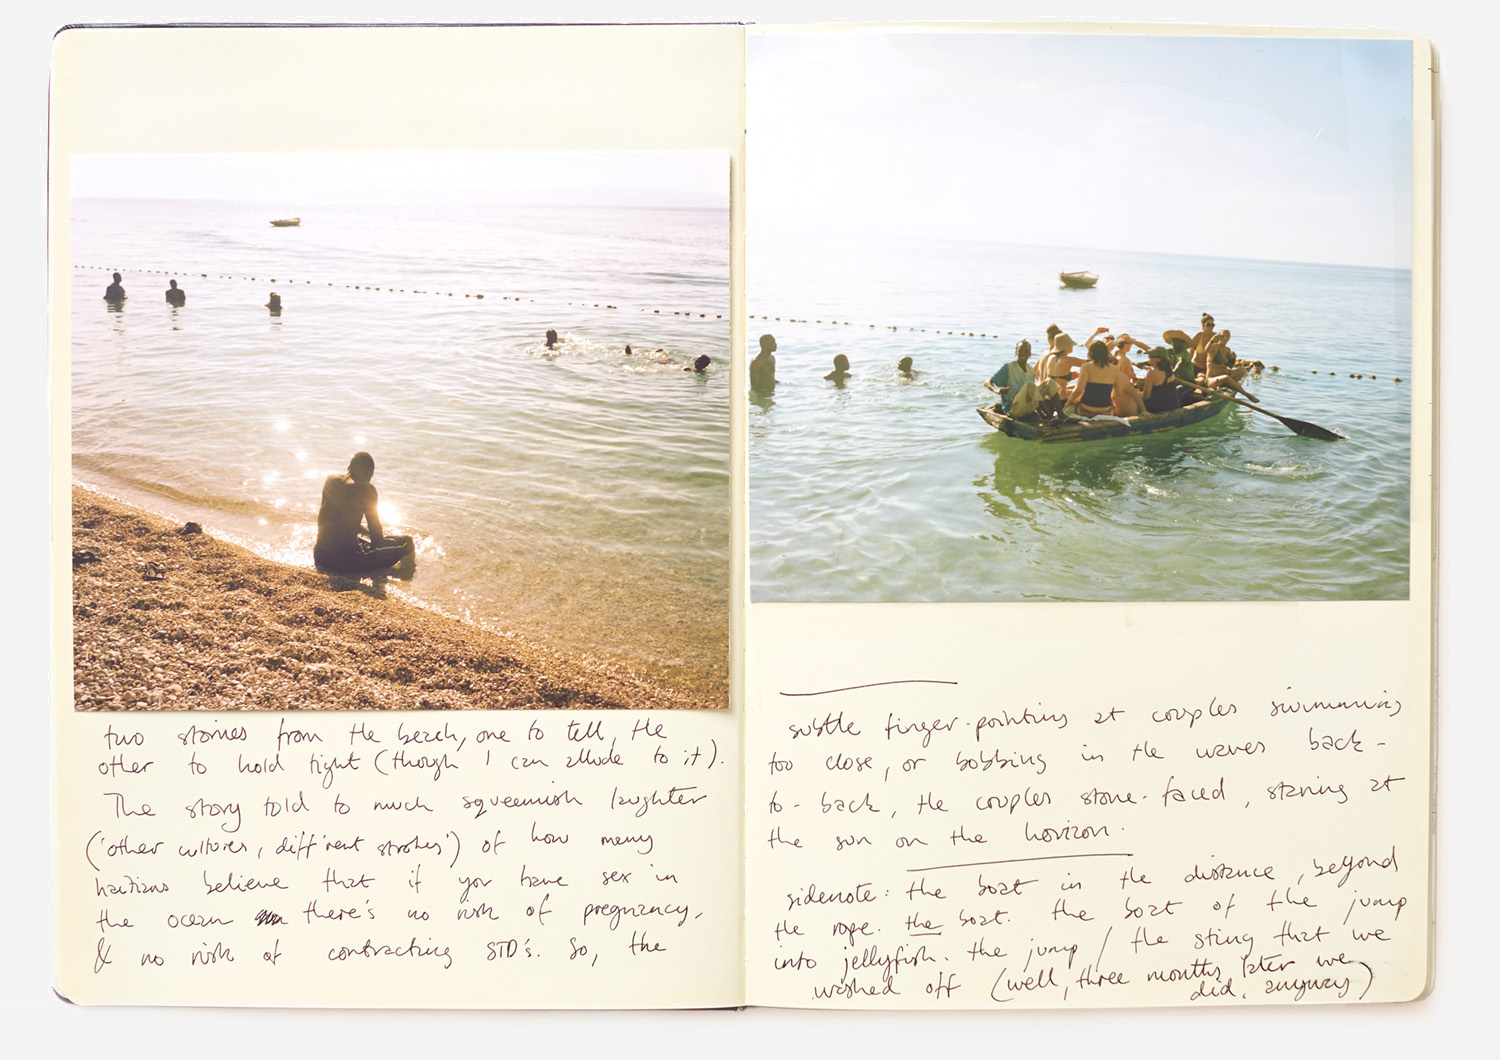 two stories from the beach, one to tell, the
other to hold tight (though I can allude to it).
The story told to much squeemish laughter
('other cultures, diff'rent strokes') of how many
haitians believe that if you have sex in
the ocean there's no risk of pregnancy,
& no risk of contracting STD's. So, the
subtle finger-pointing at couples swimming
too close, or bobbing in the waves back-
to-back, the couples stone-faced, staring at
the sun on the horizon.
sidenote: the boat in the distance, beyond
the rope. the boat. the boat of the jump
into jellyfish. the jump / the sting that we
washed off (well, three months later we
did, anyway)